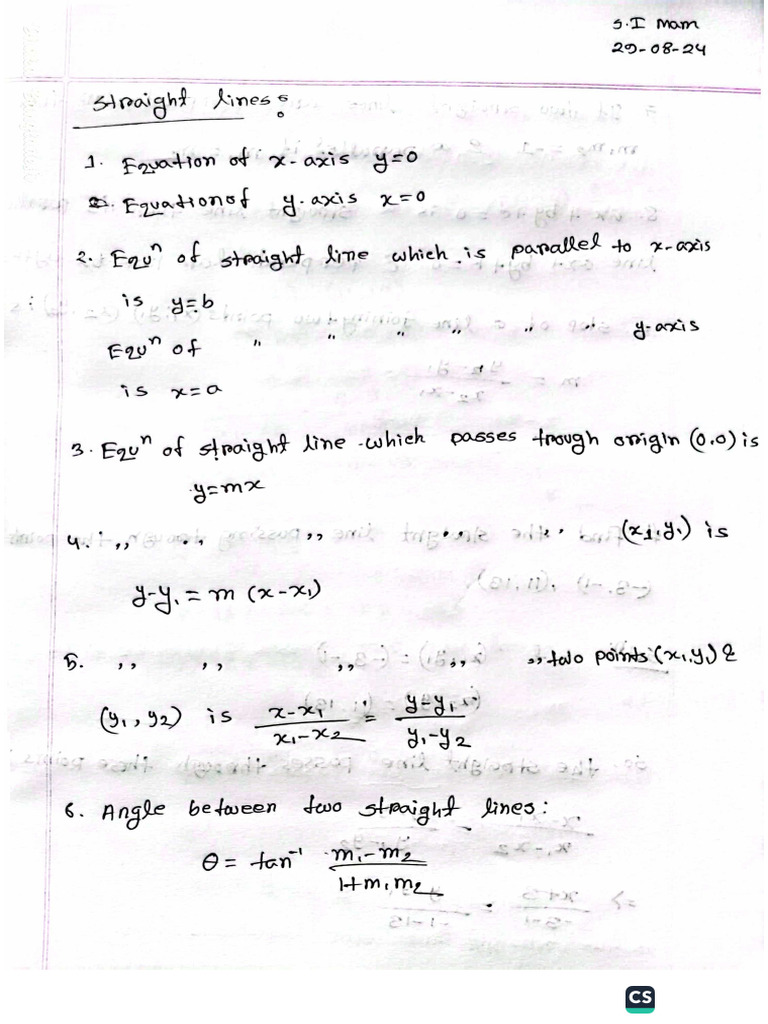 S.I Mam
29-08-24
Straight lines:
1. Equation of x-axis y=0
2. Equation of y-axis x=0
2. Equⁿ of straight line which is parallel to x-axis
is y=b
Equⁿ of " " " " " " y-axis
is x=a
3. Equⁿ of straight line which passes trough origin (0,0) is
y=mx
4. ,, ,, ,, ,, ,, (x1,y1) is
y-y1 = m (x-x1)
5. ,, ,, ,, ,, ,, two points (x1,y1) &
(y1, y2) is (x-x1)/(x1-x2) = (y-y1)/(y1-y2)
6. Angle between two straight lines:
θ = tan⁻¹ (m1-m2)/(1+m1m2)
CS